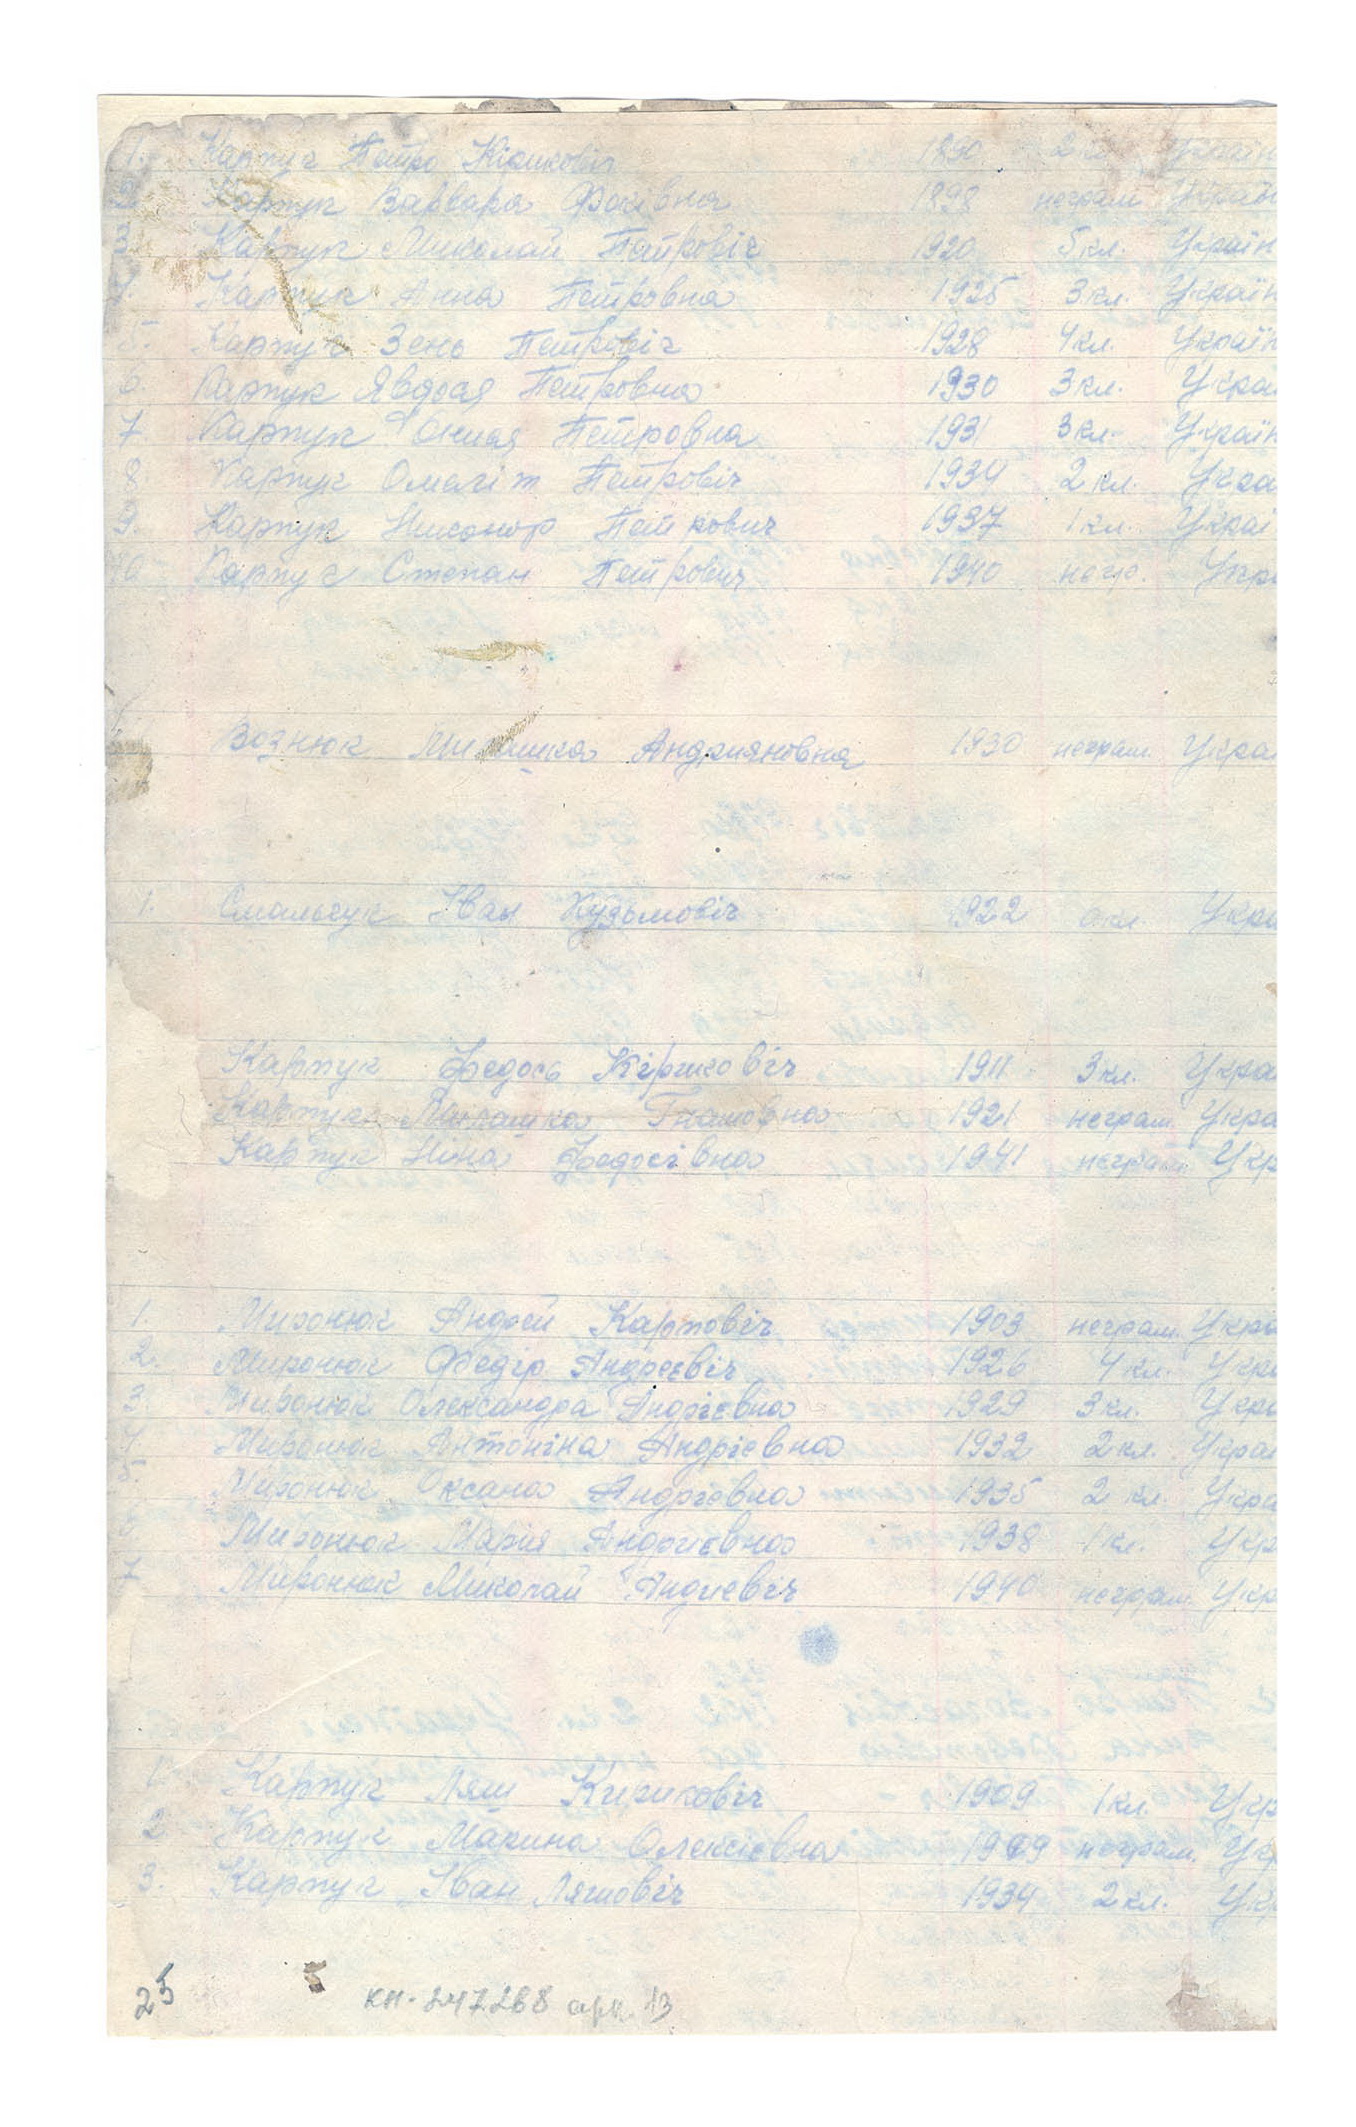 1. Карпук Петро Кірикові 1890 2 кл Україн
2. Карпук Варвара Фоківна 1898 неграм Україн
3. Карпук Миколай Петровіч 1920 5 кл. Україн
4. Карпук Анна Петровна 1925 3 кл. Україн
5. Карпук Зень Петровіч 1928 4 кл. Україн
6. Карпук Явдося Петровна 1930 3 кл. Украї
7. Карпук Петровна 1931 3 кл. Україн
8. Карпук Петровіч 1934 2 кл. Укра
9. Карпук Никонор Петрович 1937 1 кл. Украї
10. Карпук Степан Петрович 1940 негр. Укра
Вознюк Андрияновна 1930 неграм. Украї
1. Смальчук Іван Кузьмовіч 1922 кл. Украї
Карпук Федось Кірикович 1911 3 кл. Украї
Карпук 1921 неграм. Укра
Карпук Ніна Федосівна 1941 неграм Укр
1. Миронюк Андрей Карповіч 1903 неграм. Укра
2. Миронюк Федір Андреєвіч 1926 4 кл. Укра
3. Миронюк Олександра Андрієвна 1929 3 кл. Укра
4. Миронюк Антоніна Андрієвна 1932 2 кл. Украї
5. Миронюк Оксана Андрієвна 1935 2 кл. Укра
6 Миронюк Мария Андриєвна 1938 1 кл. Укр
7 Миронюк Миколай Андиєвіч 1940 неграм. Укр
1. Карпук Ляш Кирикові 1909 1 кл. Укр
2 Карпук Марина Олексієвна 1909 неграм. Ук
3. Карпук Іван Ляшовіч 1934 2 кл. Укр
25 КН-247268 арк. 13